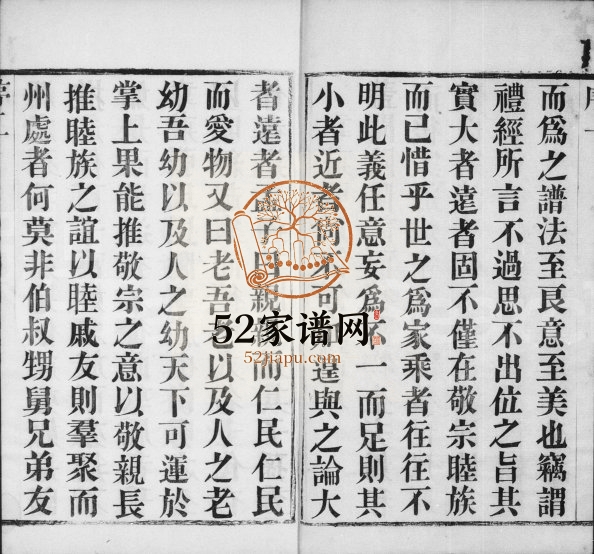 而爲之譜法至良意至美也竊謂
禮經所言不過思不出位之旨其
實大者遠者固不僅在敬宗睦族
而已惜乎世之爲家乘者往往不
明此義任意妄爲不一而足則其
小者近者尚不可遑與之論大
者遠者孟子曰親親而仁民仁民
而愛物又曰老吾老以及人之老
幼吾幼以及人之幼天下可運於
掌上果能推敬宗之意以敬親長
推睦族之誼以睦戚友則羣聚而
州處者何莫非伯叔甥舅兄弟友
52家谱网
52jiapu.com